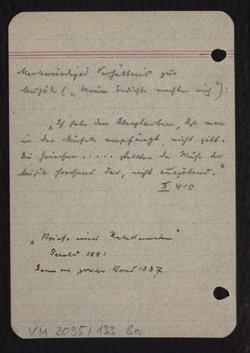 Merkwürdiges Verhältnis zur
Musik („Meine Gedichte machten mich“):
„Ich habe den Aberglauben, daß man
in der Musik empfängt, nicht gibt.
Die Griechen..... stellten die Muse der
Musik horchend dar, nicht ausübend.“
II 410
„Briefe eines Unbekannten“
Gerold 1881
Dann ein zweiter Band 1887
VM 2095/133 Bn